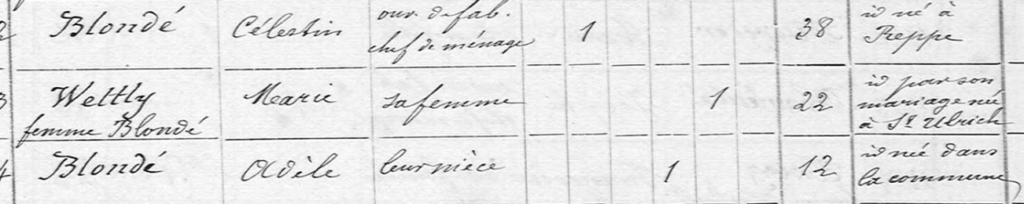 2 Blondé Célestin ouv. de fab. chef de ménage 1 38 id né à Reppe
3 Weltly femme Blondé Marie sa femme 1 22 id par son mariage née à St Ulrich
4 Blondé Adèle leur nièce 1 12 id née dans la commune